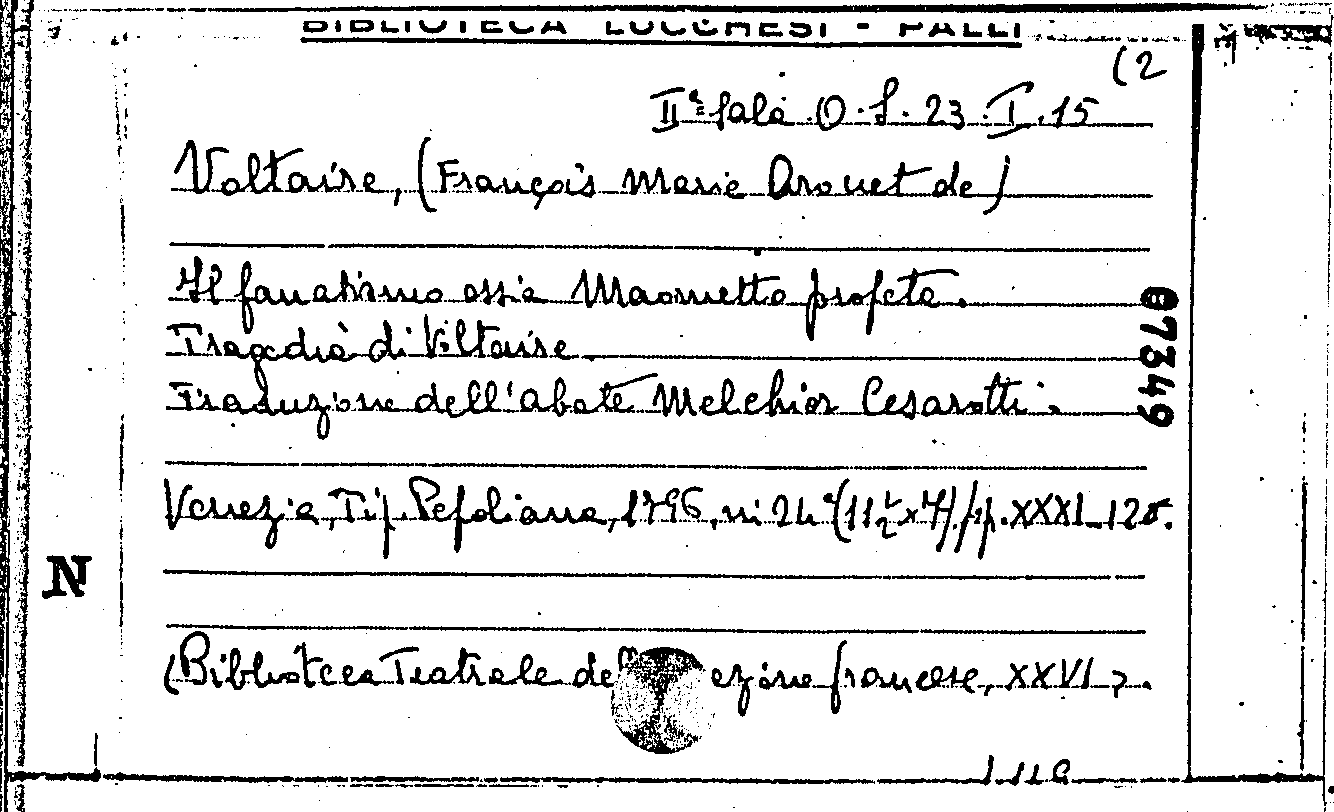 BIBLIOTECA LUCCHESI - PALLI
(2
IIª Sala O. S. 23. I. 15
Voltaire, (François Marie Arouet de)
Il fanatismo ossia Maometto profeta.
Tragedia di Voltaire.
Traduzione dell'abate Melchior Cesarotti.
07349
Venezia, Tip. Pepoliana, 1796, in 24º (11½ x 7), pp. XXXI-120.
N
(Biblioteca Teatrale de ezione francese, XXVI).